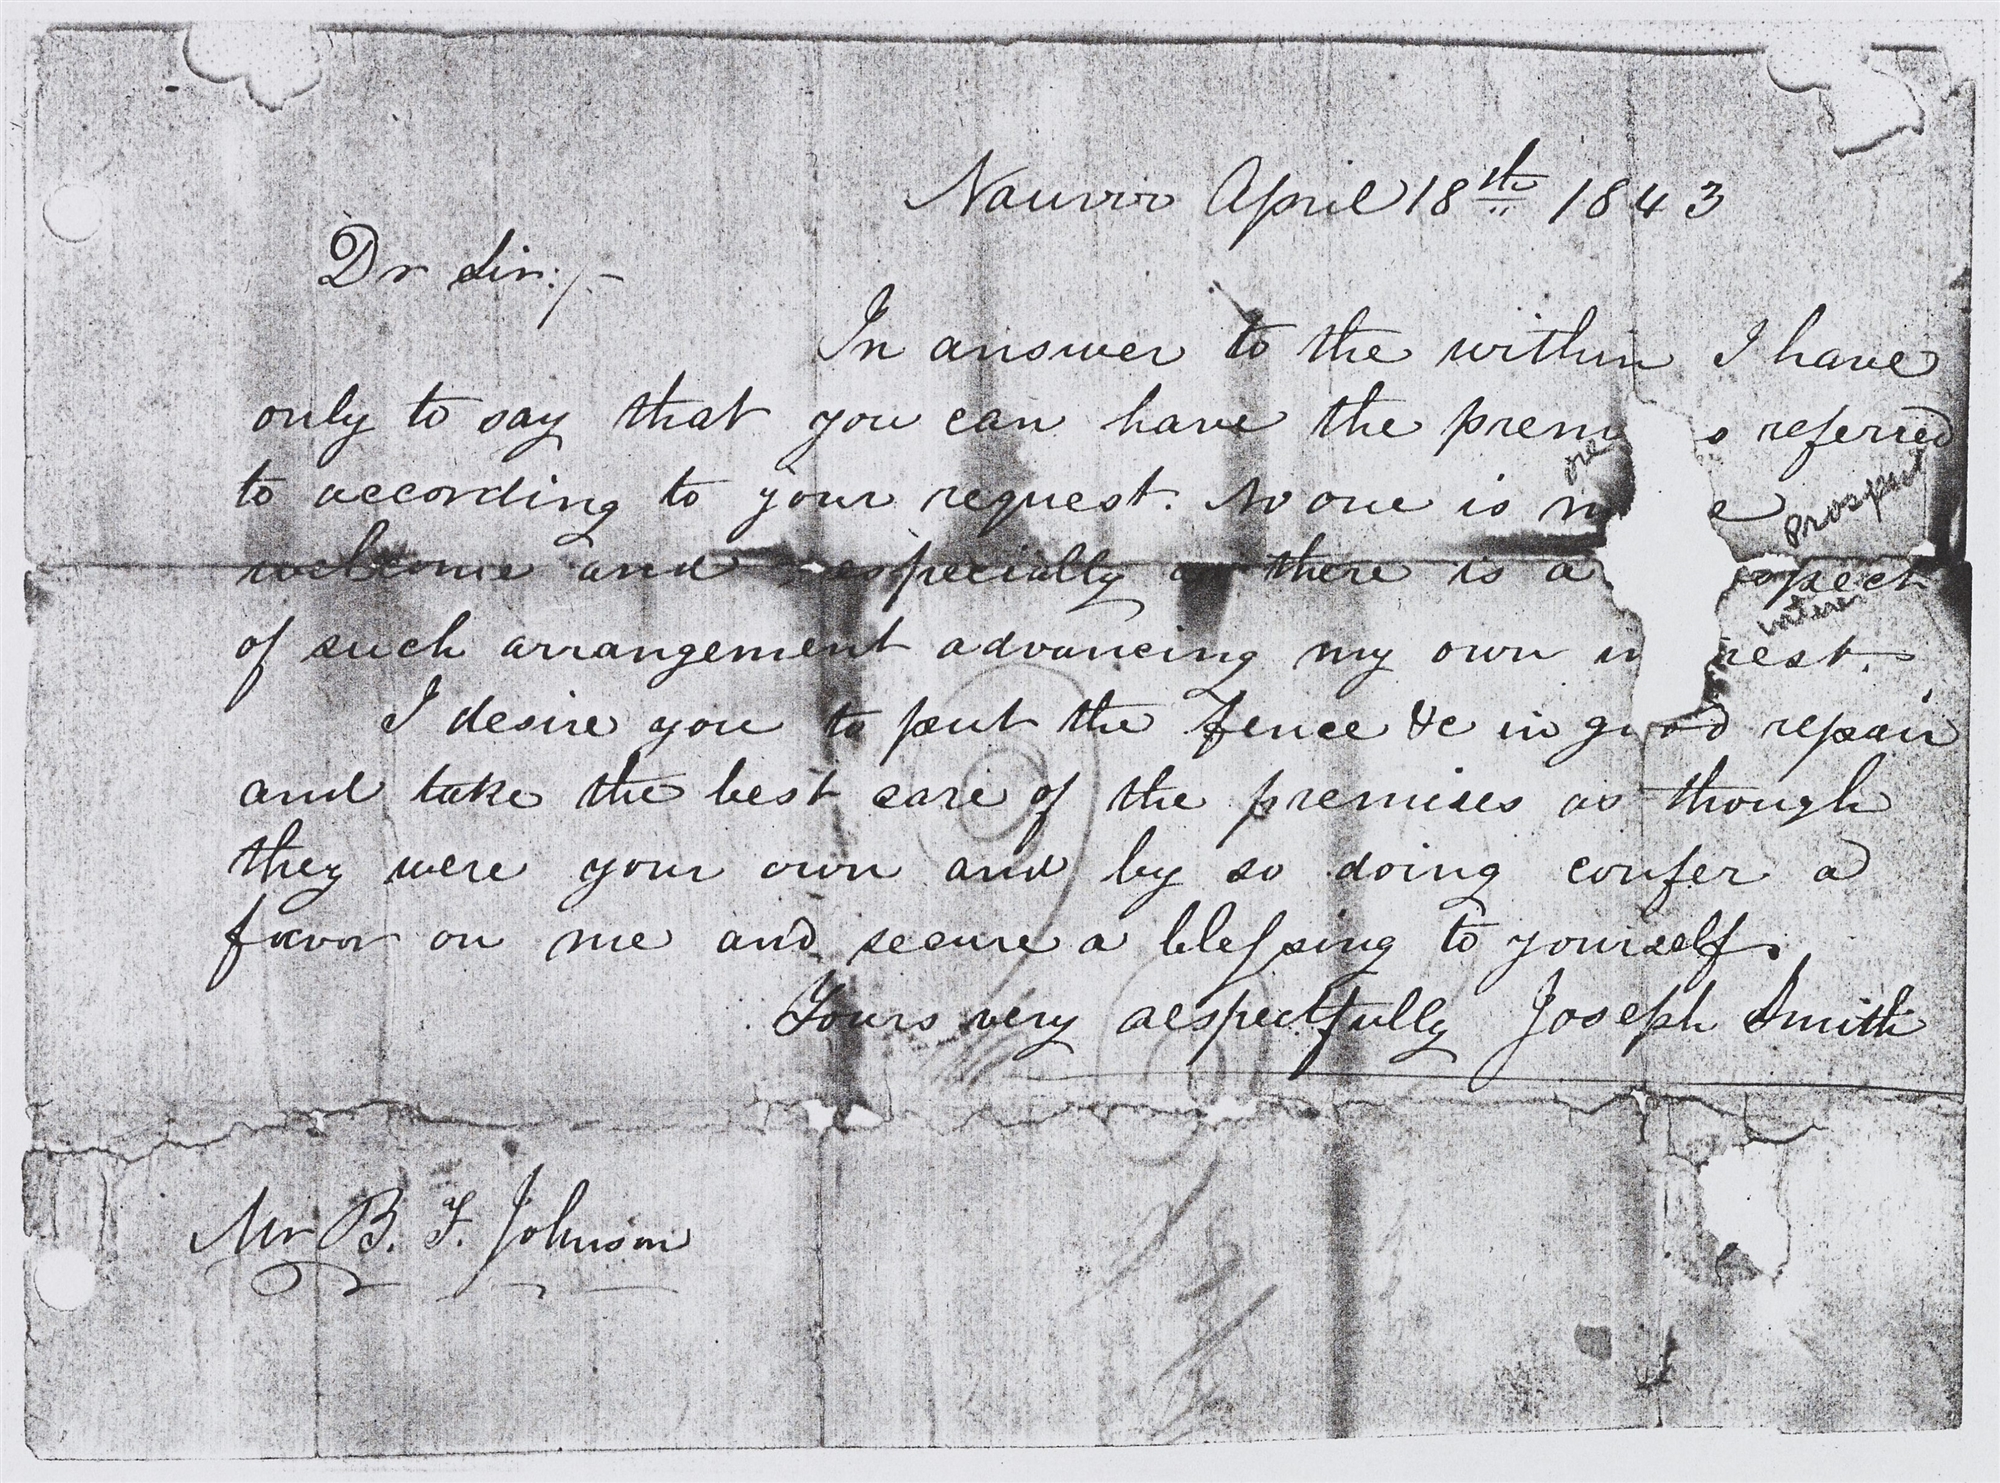 Nauvoo April 18th 1843
Dr Sir:/-
In answer to the within I have
only to say that you can have the prem s referred
to according to your request. No one is m e
ore
prospect
welcome and especially as there is a ospect
interes
of such arrangement advancing my own in rest.
I desire you to put the fence &c in good repair
and take the best care of the premises as though
they were your own and by so doing confer a
favor on me and secure a blessing to yourself.
Yours very respectfully Joseph Smith
Mr B. F. Johnson